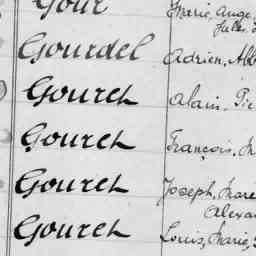 Gour Marie, Ange
Jules
Gourdel Adrien, Abb
Gouret Alain, Pie
Gouret François, M
Gouret Joseph, Mare
Alexan
Gouret Louis, Marie,